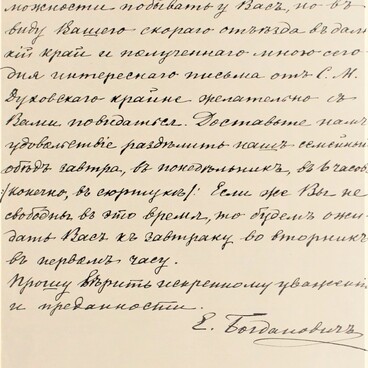 можности побывать у Васъ, но въ
виду Вашего скораго отъѣзда въ дале
кій край и полученнаго мною сего
дня интереснаго письма отъ С. М.
Духовскаго крайне желательно съ
Вами повидаться. Доставьте намъ
удовольствіе раздѣлить нашъ семейны
обѣдъ завтра, въ понедѣльникъ, въ 6 часов
/конечно, въ сюртукѣ/. Если же Вы не
свободны въ это время, то будемъ ожи
дать Васъ къ завтраку во вторникъ
въ первомъ часу.
Прошу вѣрить искреннему уваженію
и преданности.
Е. Богдановичъ